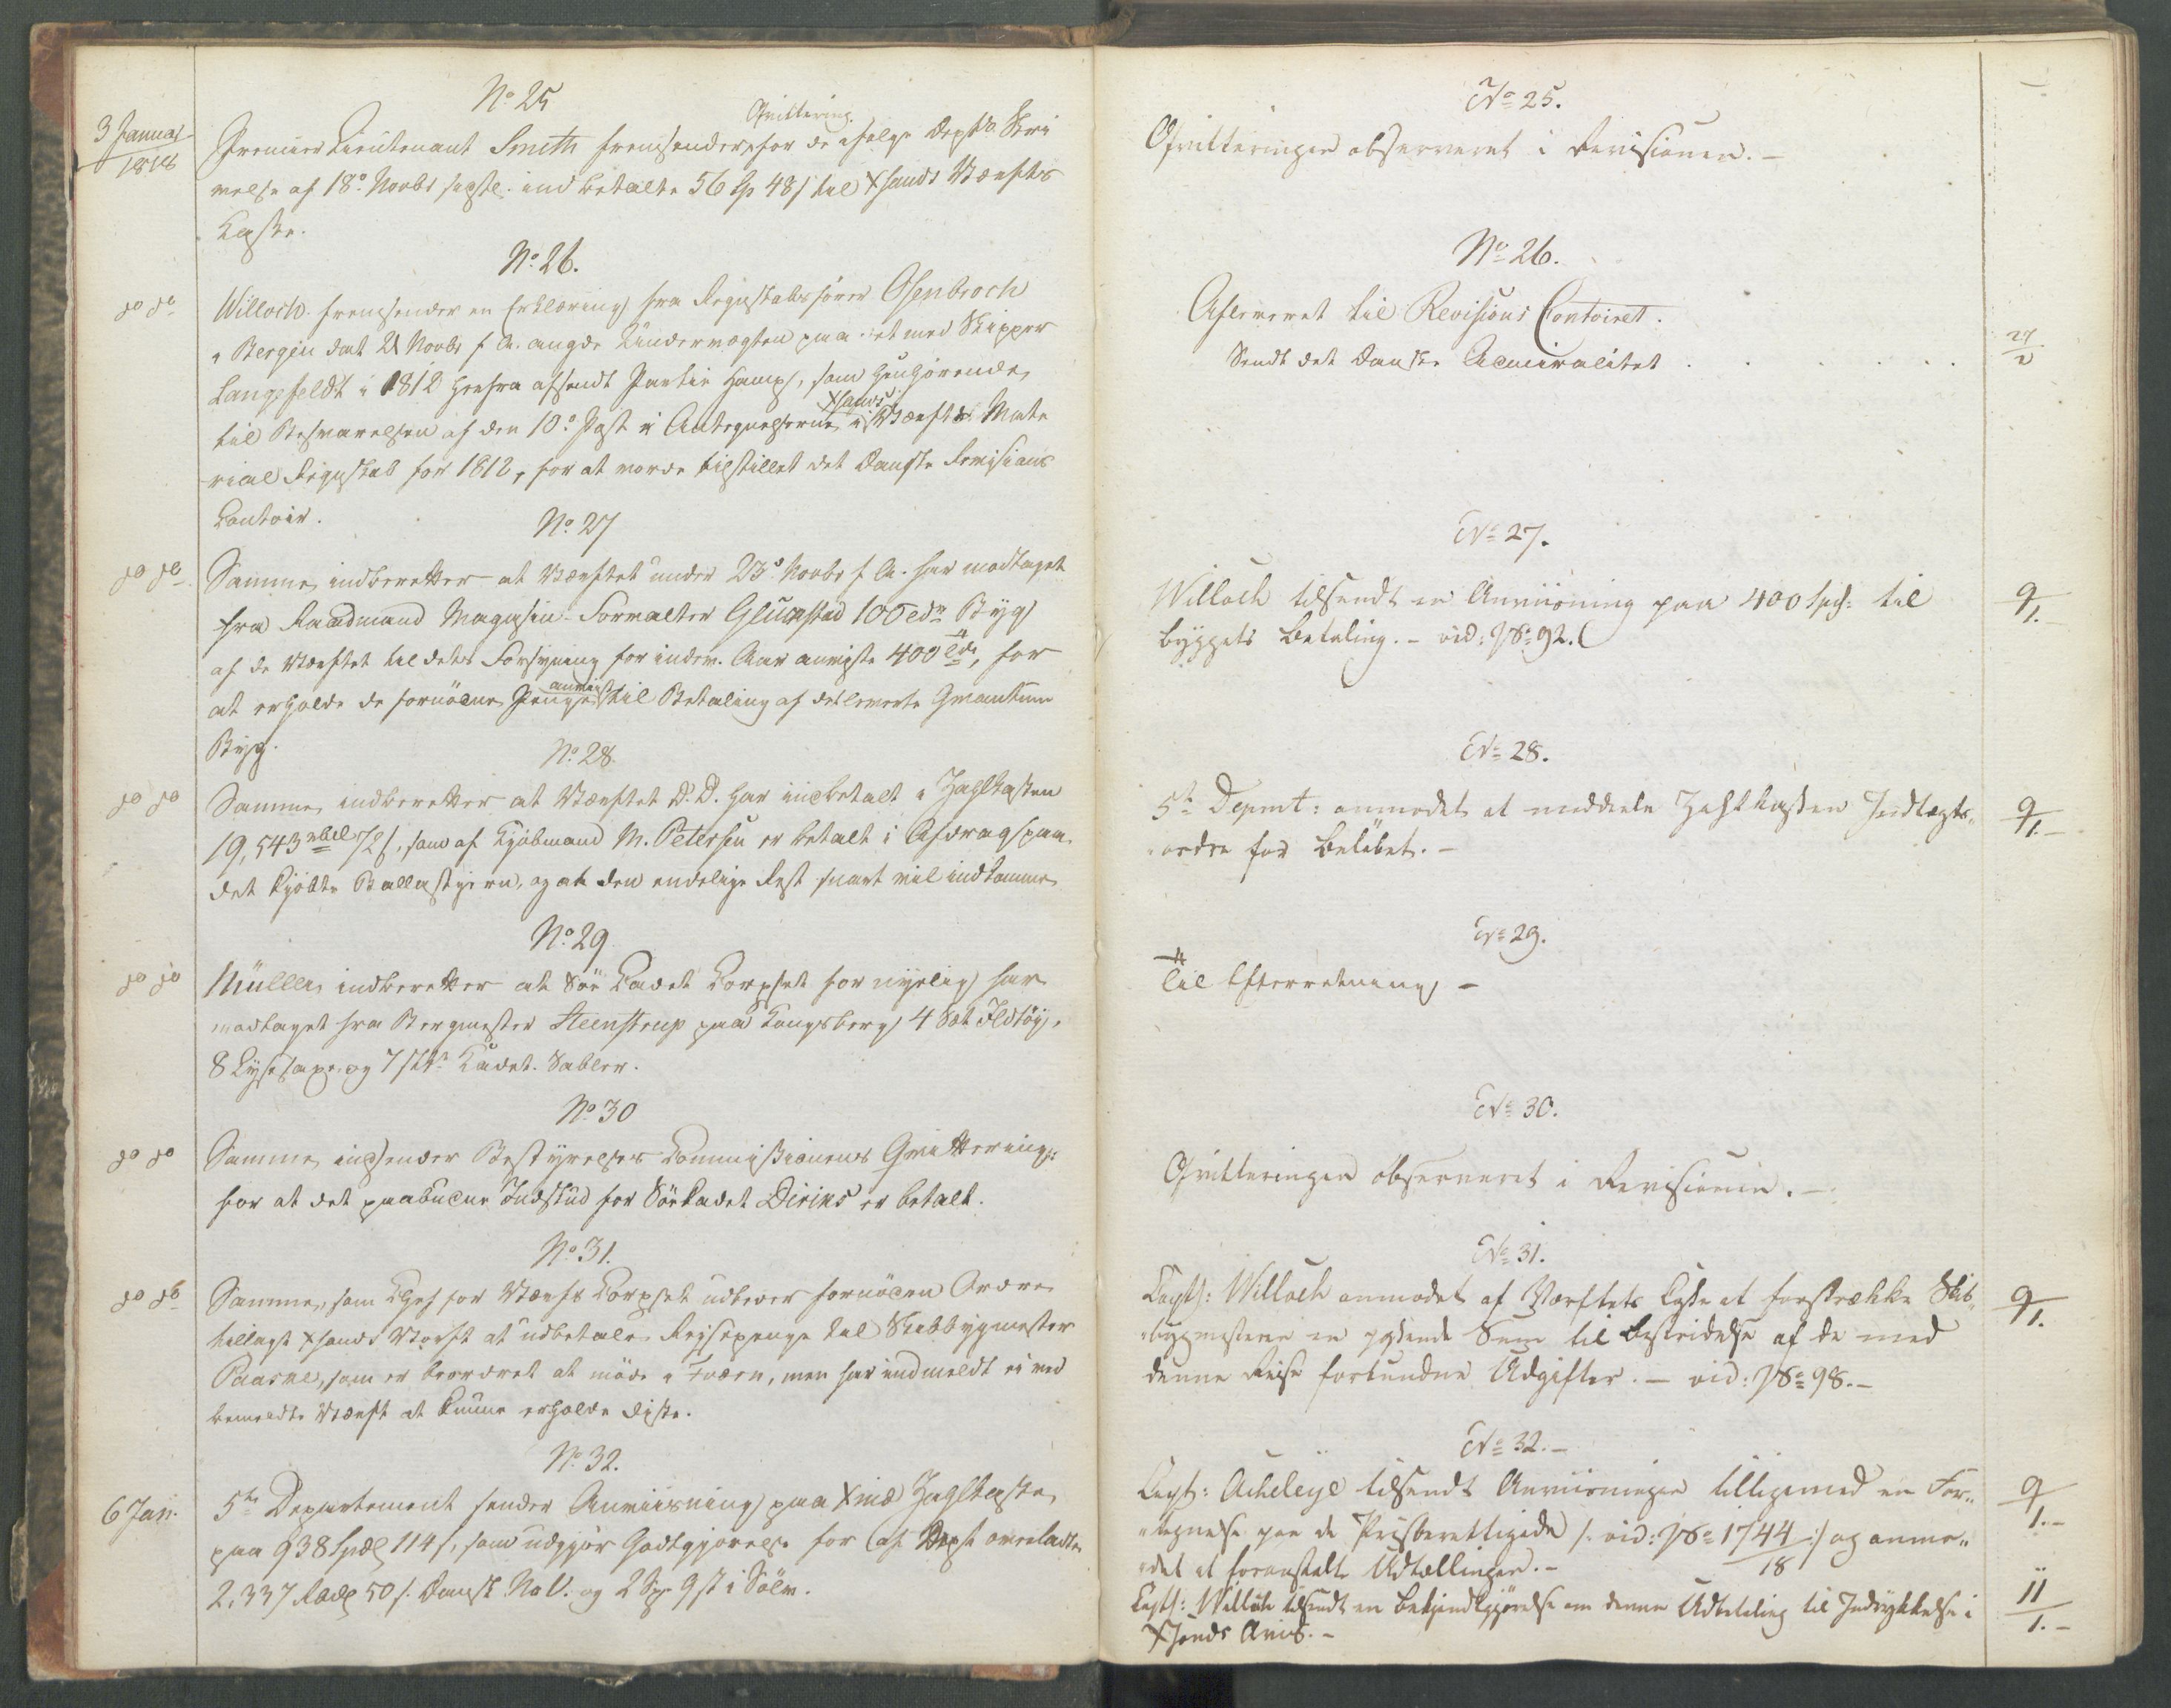 No 25
3 Januar
1818
Qvittering
Premier Lieutenant Smith fremsender for de ifølge Dept. Skri
velse af 18de Novbr indbetalte 56 Sp 48 s til Xsands Værfts
Kasse.
No 26.
do do
Willoch fremsender en Erklæring fra Regnskabsfører Osenbroch
i Bergen dat 21 Novbr f. A. angde Undervægten paa et med Skipper
Langefeldt i 1812 herfra afsendt Partie Hamp, som henhørende
til Besvarelsen af den 10de Post i Antegnelserne i Xsands Værfts Mate
rial Regnskab for 1812, for at vorde tilstillet det Danske Revisions
Contoir.
No 27
do do
Samme indberetter at Værftet under 23de Novbr f. A. har modtaget
fra Raadmand Magasin-Forvalter Gluckstad 100 Tdr Byg
af de Værftet til dets Forsyning for indev. Aar anviste 400 Tdr, for
anvist
at erholde de fornødne Penge til Betaling af det leverte Qvantum
Byg.
No 28
do do
Samme indberetter at Værftet D. D. har indbetalt i Zahlkassen
19,543 rbd 72 s, som af Kjøbmand M. Petersen er betalt i Afdrag paa
det kjøbte Ballastjern, og at den endelige Rest snart vil indkomme
No 29
do do
Müller indberetter at Søe Cadet Corpset for nyelig har
modtaget fra Bergmester Steenstrup paa Kongsberg 4 Sæt Fldtøy,
8 og 7 Stk Cadet Sabler.
No 30
do do
Samme indsender Bestyrelses Commissionens Qvittering
for at det paabudne Indskud for Søe Cadet Diriks er betalt.
No 31.
do do
Samme, som Chef for Værfts Corpset udbeder fornøden Ordre
tillagt Xsands Værft at udbetale Reisepenge til Skibbygmester
Paasne, som er beordret at møde i Fværn, men har indmeldt ei ved
bemeldte Værft at kunne erholde disse.
No 32.
6 Jan.
5te Departement sender Anviisning paa Xnia Zahlkasse
paa 938 Spd 114 s, som udgjør Godtgjørelse for af Dept overladte
2,337 Rbd 50 s. Dansk N.V. og 2 Sp 9 s i Sølv.
No 25.
Qvitteringen observeret i Revisionen.-
No 26.
Afleveret til Revisions Contoiret.
Sendt det Danske Admiralitet
27
2
No 27.
Willoch tilsendt en Anviisning paa 400 Spd: til
byggets Betaling.- vid: No 92.
9
1.-
No 28.
5te Depmt: anmodet at meddeele Zahlkassen Indtægts„
„ordre for Beløbet.-
9
1.-
No 29.
Til Efterretning -
No 30.
Qvitteringen observeret i Revisionen.-
No 31.
Capt: Willoch anmodet af Værftets Casse at forstrække Skib„
„bygmesteren en passende Sum til Bestridelse af de med
denne Reise forbundne Udgifter.- vid: No 98.-
9
1.
No 32.-
Capt: Acheleye tilsendt Anviisningen tilligemed en For„
„tegnelse paa de Prisberettigede /: vid: No 1744 :/ og anmo„
18
„det at foranstalte Udtællingen.-
9
1.-
Capt: Willoch tilsendt en Bekjendtgjørelse om denne Udbetaling til Indrykkelse i
Xsands Avis.-
11
1.-